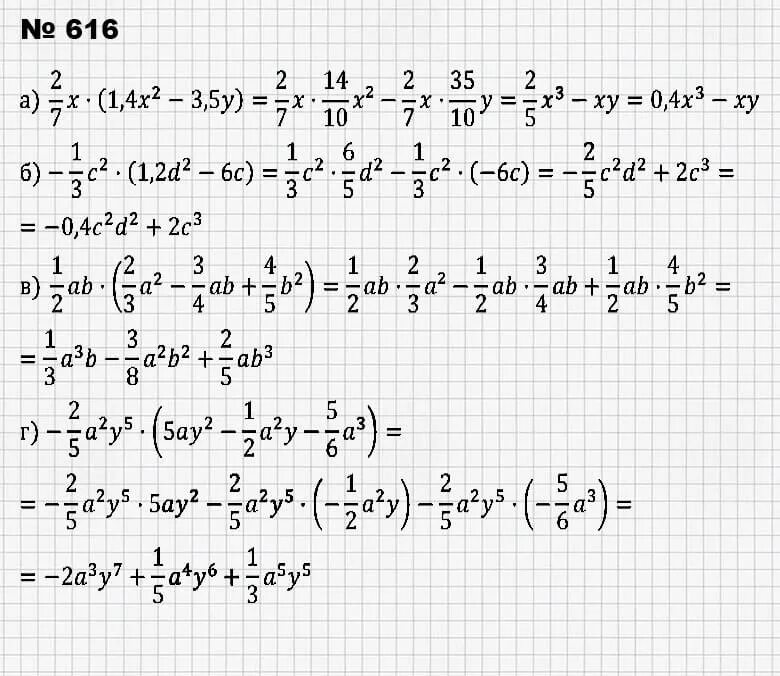 № 616
а) 2/7 x · (1,4x² − 3,5y) = 2/7 x · 14/10 x² − 2/7 x · 35/10 y = 2/5 x³ − xy = 0,4x³ − xy
б) −1/3 c² · (1,2d² − 6c) = 1/3 c² · 6/5 d² − 1/3 c² · (−6c) = −2/5 c²d² + 2c³ =
= −0,4c²d² + 2c³
в) 1/2 ab · (2/3 a² − 3/4 ab + 4/5 b²) = 1/2 ab · 2/3 a² − 1/2 ab · 3/4 ab + 1/2 ab · 4/5 b² =
= 1/3 a³b − 3/8 a²b² + 2/5 ab³
г) −2/5 a²y⁵ · (5ay² − 1/2 a²y − 5/6 a³) =
= −2/5 a²y⁵ · 5ay² − 2/5 a²y⁵ · (−1/2 a²y) − 2/5 a²y⁵ · (−5/6 a³) =
= −2a³y⁷ + 1/5 a⁴y⁶ + 1/3 a⁵y⁵